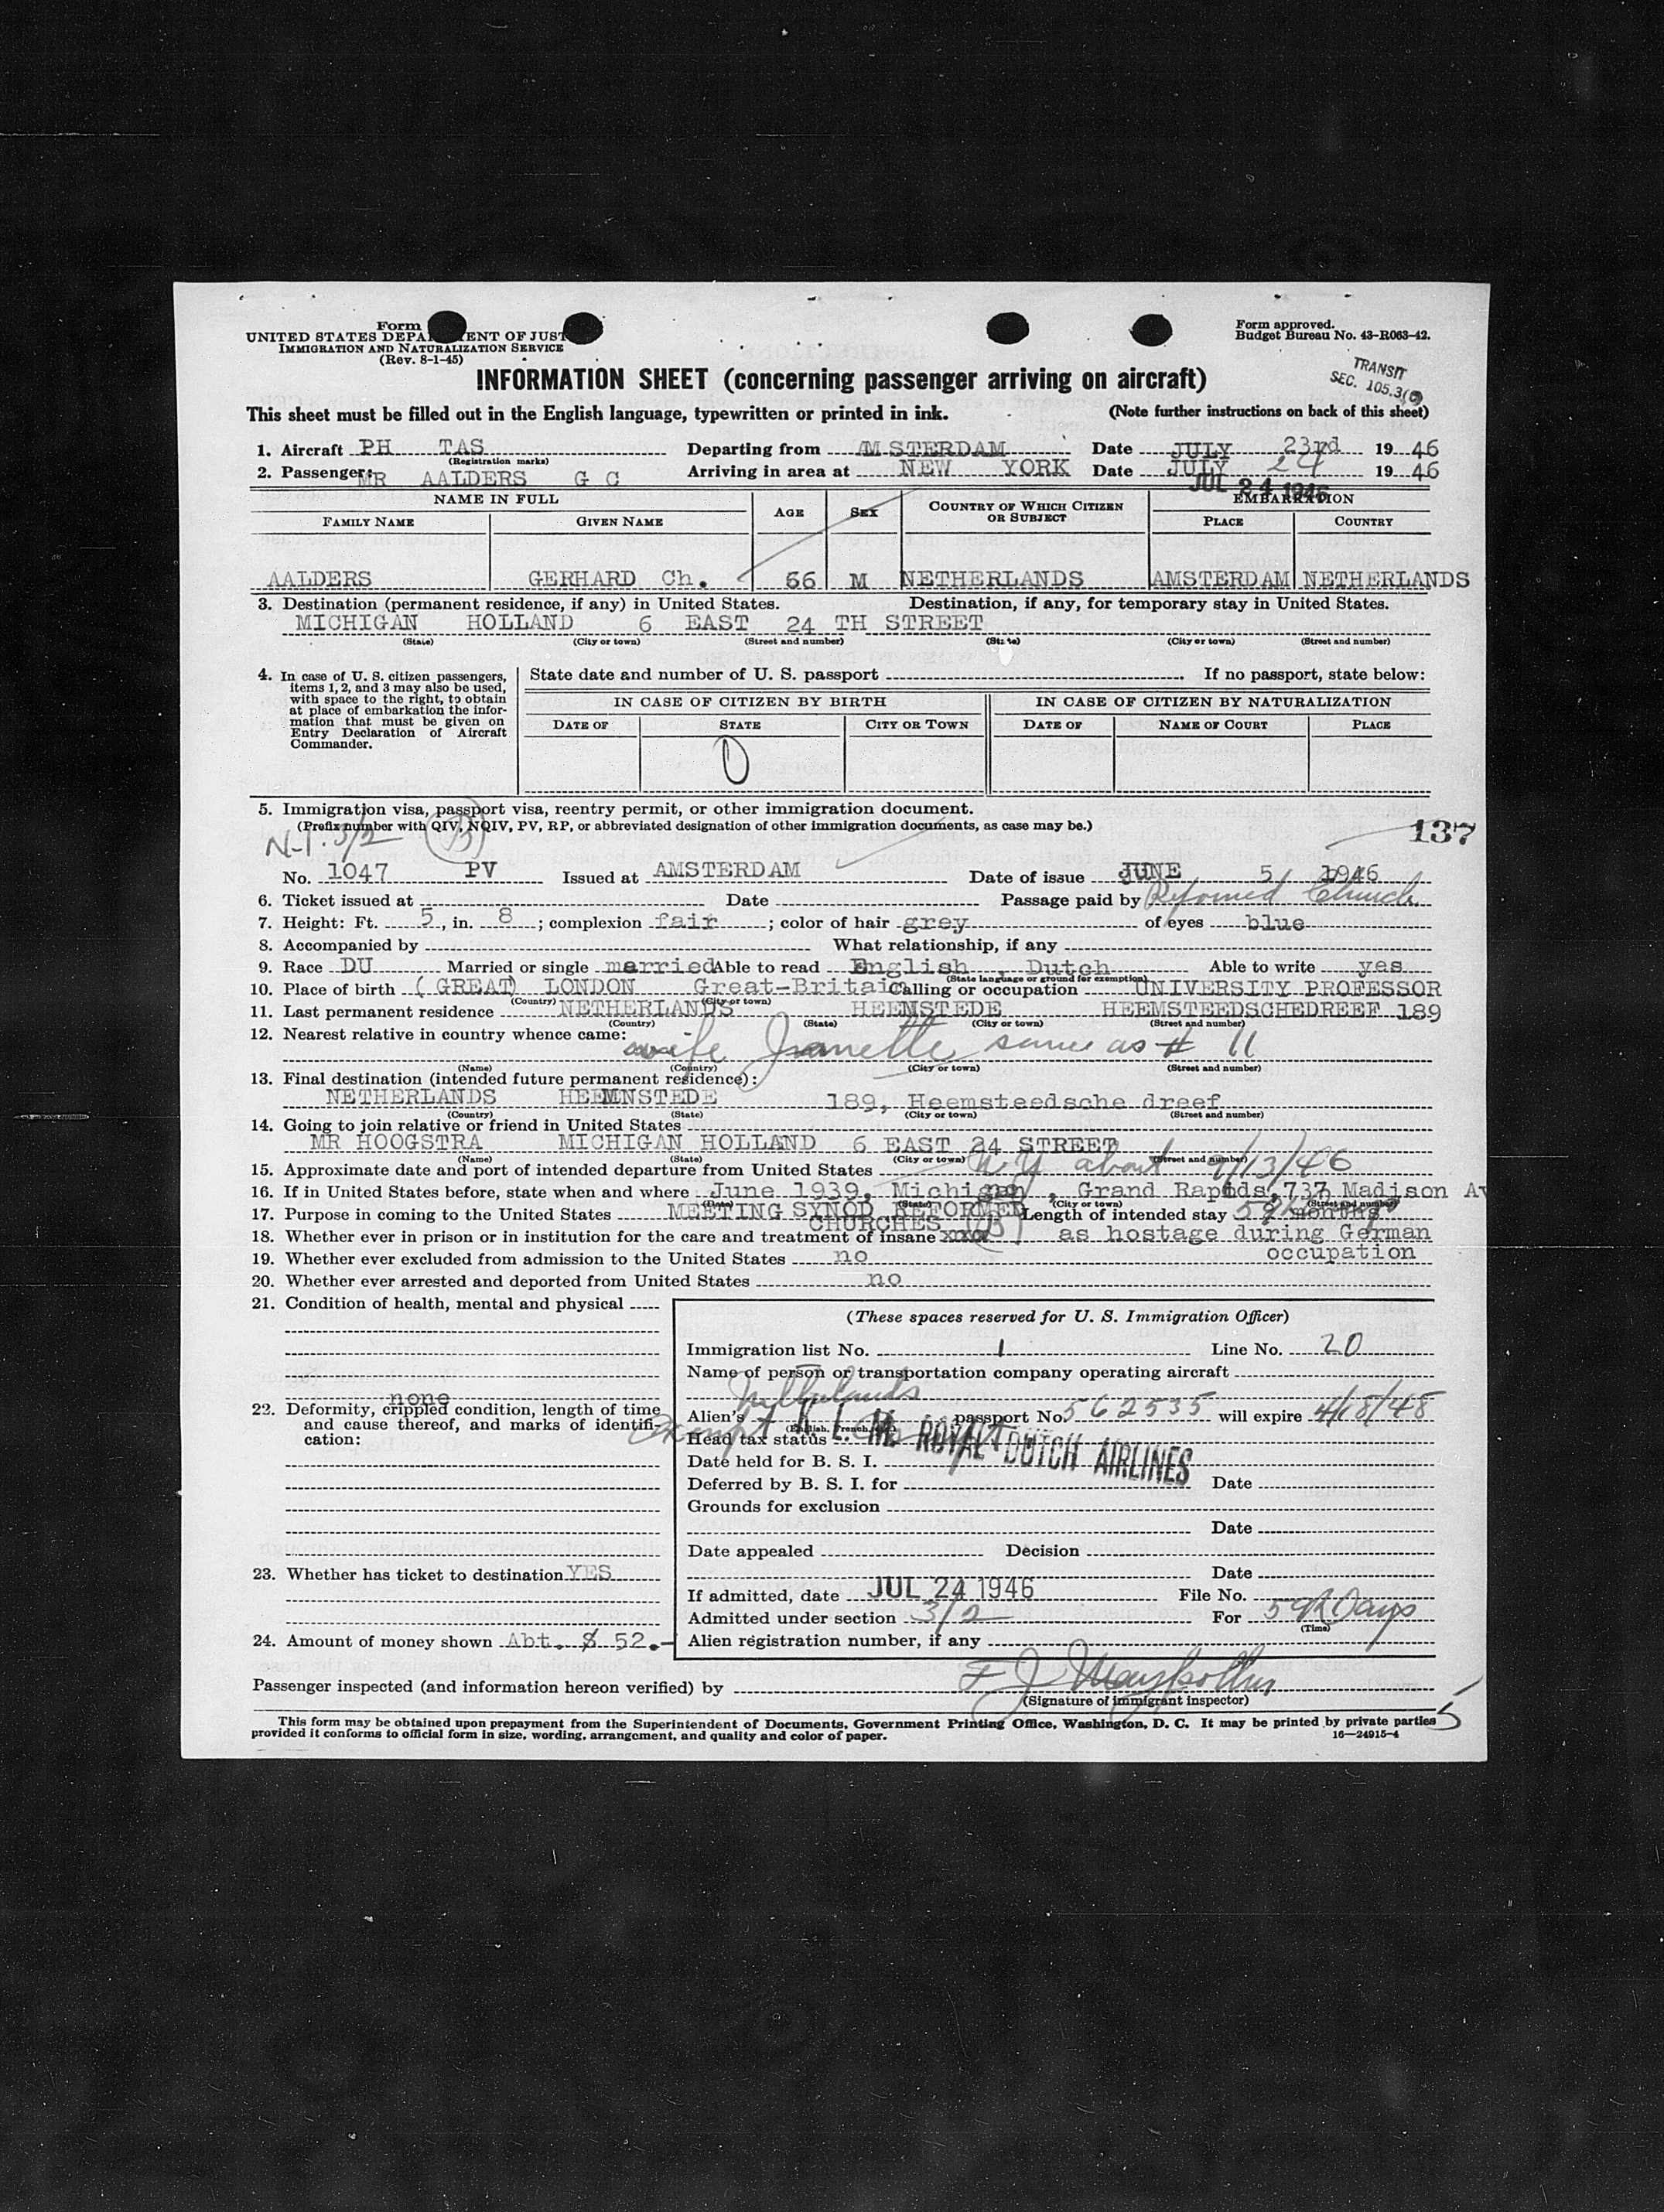 Form
UNITED STATES DEPA ENT OF JUST
IMMIGRATION AND NATURALIZATION SERVICE
(Rev. 8-1-45)
Form approved.
Budget Bureau No. 43-R063-42.
TRANSIT
SEC. 105.3(
INFORMATION SHEET (concerning passenger arriving on aircraft)
This sheet must be filled out in the English language, typewritten or printed in ink. (Note further instructions on back of this sheet)
1. Aircraft PH TAS Departing from AMSTERDAM Date JULY 23rd 1946
(Registration marks)
2. Passenger: MR AALDERS G C Arriving in area at NEW YORK Date JULY 24 1946
JUL 24 1946
NAME IN FULL AGE SEX COUNTRY OF WHICH CITIZEN OR SUBJECT EMBARKATION
FAMILY NAME GIVEN NAME PLACE COUNTRY
AALDERS GERHARD Ch. 66 M NETHERLANDS AMSTERDAM NETHERLANDS
3. Destination (permanent residence, if any) in United States. Destination, if any, for temporary stay in United States.
MICHIGAN HOLLAND 6 EAST 24 TH STREET
(State) (City or town) (Street and number) (State) (City or town) (Street and number)
4. In case of U. S. citizen passengers, items 1, 2, and 3 may also be used, with space to the right, to obtain at place of embarkation the information that must be given on Entry Declaration of Aircraft Commander.
State date and number of U. S. passport If no passport, state below:
IN CASE OF CITIZEN BY BIRTH IN CASE OF CITIZEN BY NATURALIZATION
DATE OF STATE CITY OR TOWN DATE OF NAME OF COURT PLACE
0
5. Immigration visa, passport visa, reentry permit, or other immigration document.
(Prefix number with QIV, NQIV, PV, RP, or abbreviated designation of other immigration documents, as case may be.)
137
N-1. 3/2 B
No. 1047 PV Issued at AMSTERDAM Date of issue JUNE 5 1946
6. Ticket issued at Date Passage paid by Reformed Church
7. Height: Ft. 5, in. 8; complexion fair; color of hair grey of eyes blue
8. Accompanied by What relationship, if any
9. Race DU Married or single married Able to read English , Dutch Able to write yes
(State language or ground for exemption)
10. Place of birth (GREAT) LONDON Great-Britain Calling or occupation UNIVERSITY PROFESSOR
(Country) (City or town)
11. Last permanent residence NETHERLANDS HEEMSTEDE HEEMSTEEDSCHEDREEF 189
(Country) (State) (City or town) (Street and number)
12. Nearest relative in country whence came: wife Jeanette same as # 11
(Name) (Country) (City or town) (Street and number)
13. Final destination (intended future permanent residence):
NETHERLANDS HEEMNSTEDE 189, Heemsteedsche dreef
(Country) (State) (City or town) (Street and number)
14. Going to join relative or friend in United States
MR HOOGSTRA MICHIGAN HOLLAND 6 EAST 24 STREET
(Name) (State) (City or town) (Street and number)
15. Approximate date and port of intended departure from United States N Y about 9/13/46
16. If in United States before, state when and where June 1939, Michigan , Grand Rapids, 737 Madison Av
(Date) (State) (City or town) (Street and number)
17. Purpose in coming to the United States MEETING SYNOD REFORMED CHURCHES B Length of intended stay months
18. Whether ever in prison or in institution for the care and treatment of insane xxx as hostage during German occupation
19. Whether ever excluded from admission to the United States no
20. Whether ever arrested and deported from United States no
21. Condition of health, mental and physical
none
22. Deformity, crippled condition, length of time and cause thereof, and marks of identification:
23. Whether has ticket to destination YES
24. Amount of money shown Abt. $ 52.-
(These spaces reserved for U. S. Immigration Officer)
Immigration list No. 1 Line No. 20
Name of person or transportation company operating aircraft
K. L. M. ROYAL DUTCH AIRLINES
Netherlands
Alien's passport No. 562535 will expire 4/18/48
(English, French, etc.)
Head tax status Exempt
Date held for B. S. I.
Deferred by B. S. I. for Date
Grounds for exclusion
Date
Date appealed Decision
Date
If admitted, date JUL 24 1946 File No.
Admitted under section 3/2 For 59 Days
(Time)
Alien registration number, if any
Passenger inspected (and information hereon verified) by F J
(Signature of immigrant inspector)
5
This form may be obtained upon prepayment from the Superintendent of Documents, Government Printing Office, Washington, D. C. It may be printed by private parties
provided it conforms to official form in size, wording, arrangement, and quality and color of paper. 16—24915-4